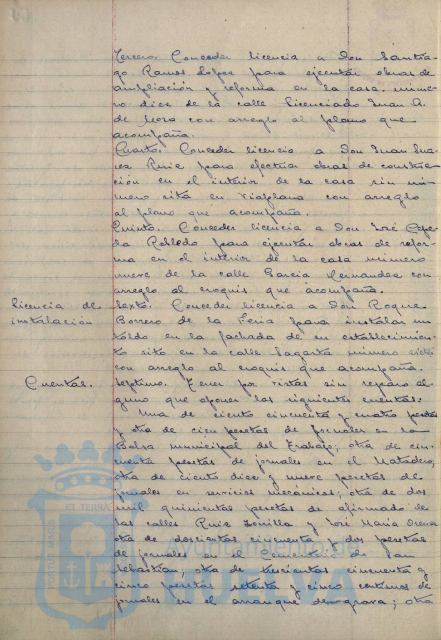 Tercero. Conceder licencia a Don Santia-
go Ramos López para ejecutar obras de
ampliación y reforma en la casa núme-
ro doce de la calle Licenciado Juan A.
de Mora con arreglo al plano que
acompaña.
Cuarto. Conceder licencia a Don Juan Sua-
rez Ruiz para efectuar obras de construc-
ción en el interior de la casa sin nú-
mero sita en Vialplana con arreglo
al plano que acompaña.
Quinto. Conceder licencia a Don José Cepe-
da Robledo para ejecutar obras de refor-
ma en el interior de la casa número
nueve de la calle Garcia Hernandez con
arreglo al croquis que acompaña.
Licencia de
instalación
Sexto. Conceder licencia a Don Roque
Borrero de la Feria para instalar un
toldo en la fachada de su establecimien-
to sito en la calle Sagasta número
con arreglo al croquis que acompaña.
Cuentas.
Septimo. Tener por vistas sin reparo al-
guno que oponer las siguientes cuentas:
Una de ciento cincuenta y cuatro pesetas
y otra de cien pesetas de jornales en la
Bolsa municipal del Trabajo; otra de cin-
cuenta pesetas de jornales en el Matadero;
otra de ciento diez y nueve pesetas de
jornales en servicios mecánicos; otra de dos
mil quinientas pesetas de afirmado de
las calles Ruiz Zorrilla y José Maria
otra de doscientas cincuenta y dos pesetas
de jornales en el Cementerio de San
Sebastian; otra de trescientas cincuenta y
cinco pesetas setenta y cinco centimos de
jornales en el arranque de grava; otra